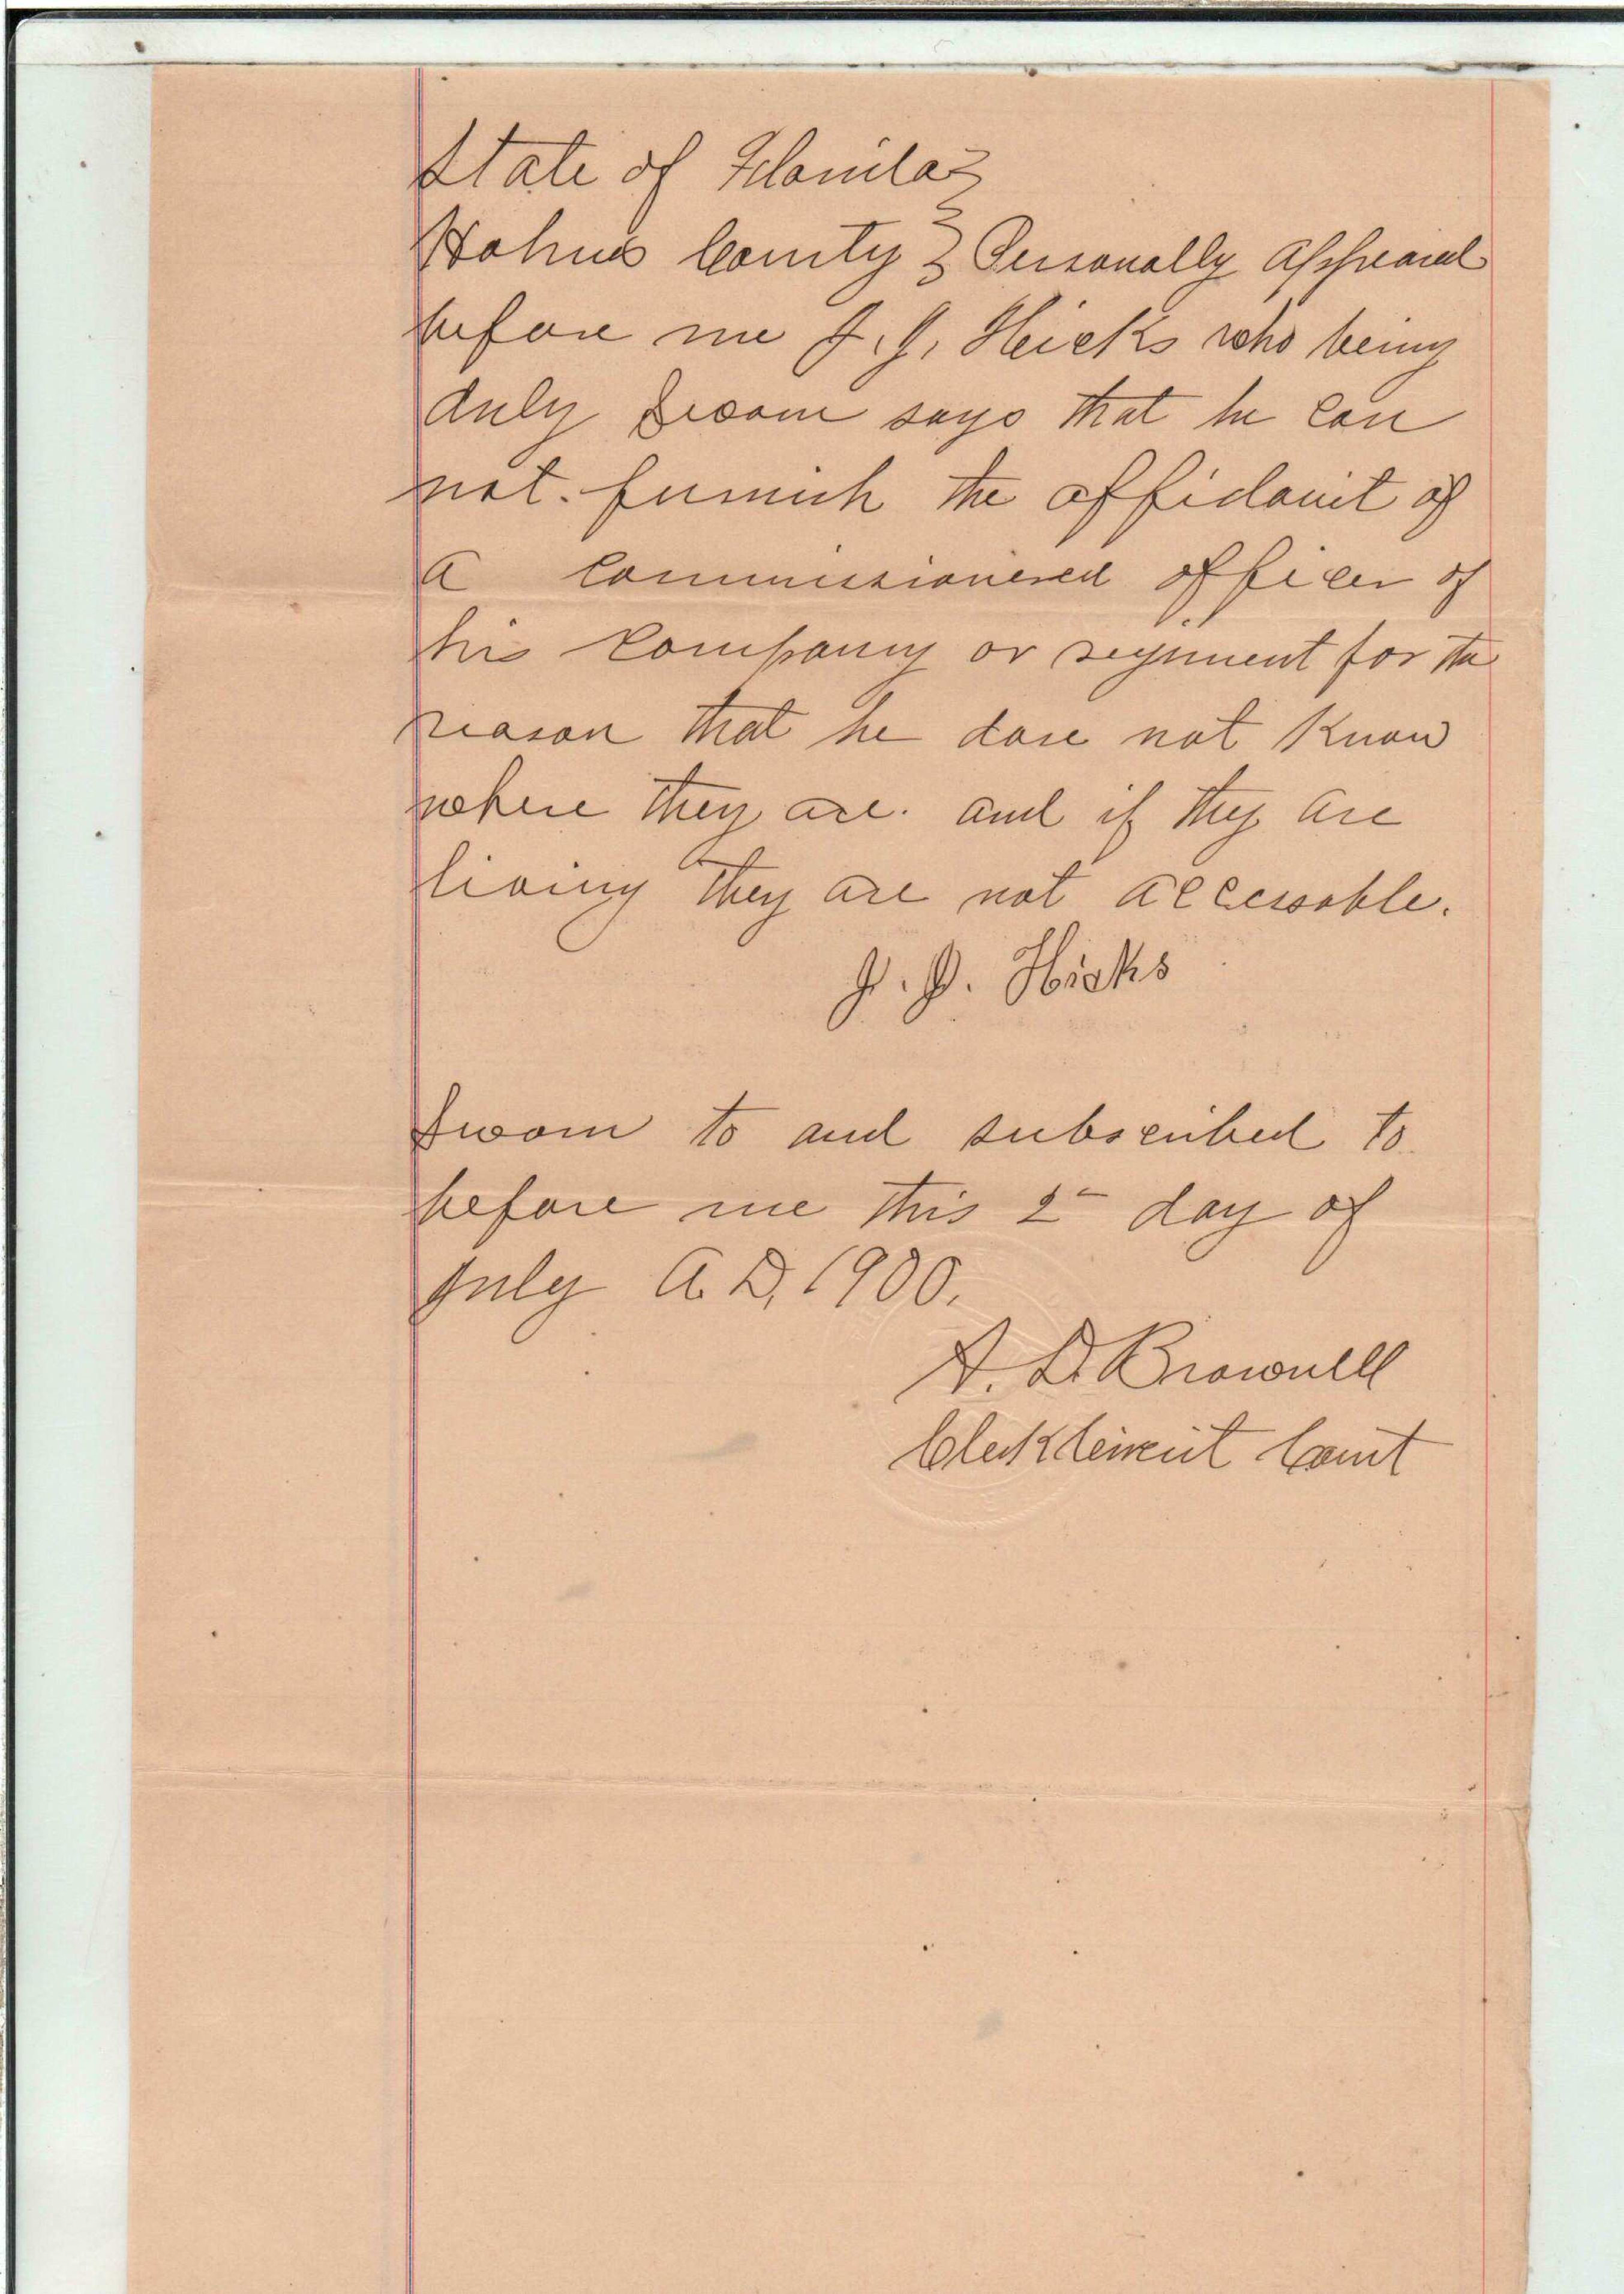 State of Florida }
Holmes County } Personally appeared
before me J. J. Hicks who being
duly sworn says that he can
not. furnish the affidavit of
a commissionered officer of
his company or regiment for the
reason that he dose not Know
where they are. and if they are
living they are not accessable.
J. J. Hicks
Sworn to and subscribed to
before me this 2" day of
July A. D, 1900.
A. D. Brownell
Clerk Circuit Court